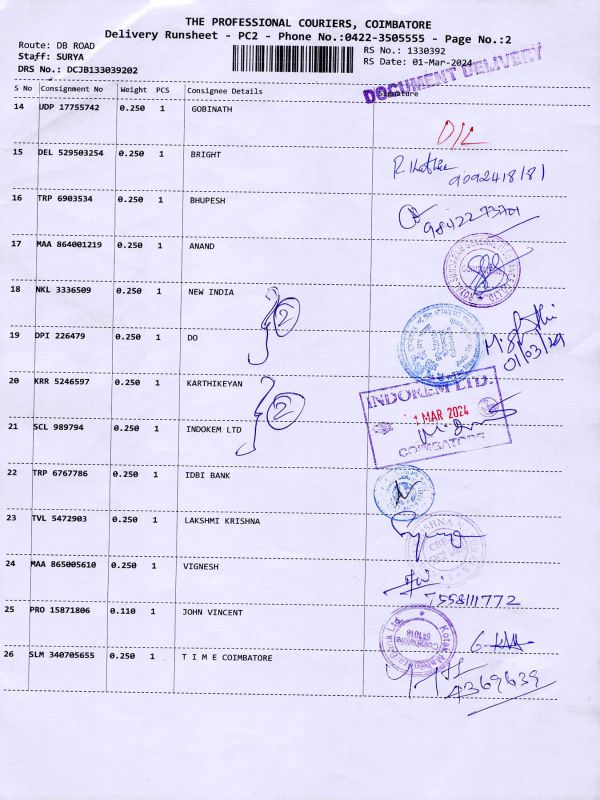 THE PROFESSIONAL COURIERS, COIMBATORE
Delivery Runsheet - PC2 - Phone No.:0422-3505555 - Page No.:2
Route: DB ROAD
Staff: SURYA
DRS No.: DCJB133039202
RS No.: 1330392
RS Date: 01-Mar-2024
DOCUMENT DELIVERY
S No Consignment No Weight PCS Consignee Details Signature
14 UDP 17755742 0.250 1 GOBINATH
D/L
15 DEL 529503254 0.250 1 BRIGHT
9092418181
16 TRP 6903534 0.250 1 BHUPESH
9842273701
17 MAA 864001219 0.250 1 ANAND
18 NKL 3336509 0.250 1 NEW INDIA
2
19 DPI 226479 0.250 1 DO
01/03/24
20 KRR 5246597 0.250 1 KARTHIKEYAN
2
INDOKEM LTD.
1 MAR 2024
COIMBATORE
21 SCL 989794 0.250 1 INDOKEM LTD
22 TRP 6767786 0.250 1 IDBI BANK
23 TVL 5472903 0.250 1 LAKSHMI KRISHNA
24 MAA 865005610 0.250 1 VIGNESH
7558111772
25 PRO 15871806 0.110 1 JOHN VINCENT
Coimbatore
641018
26 SLM 340705655 0.250 1 T I M E COIMBATORE
4369639